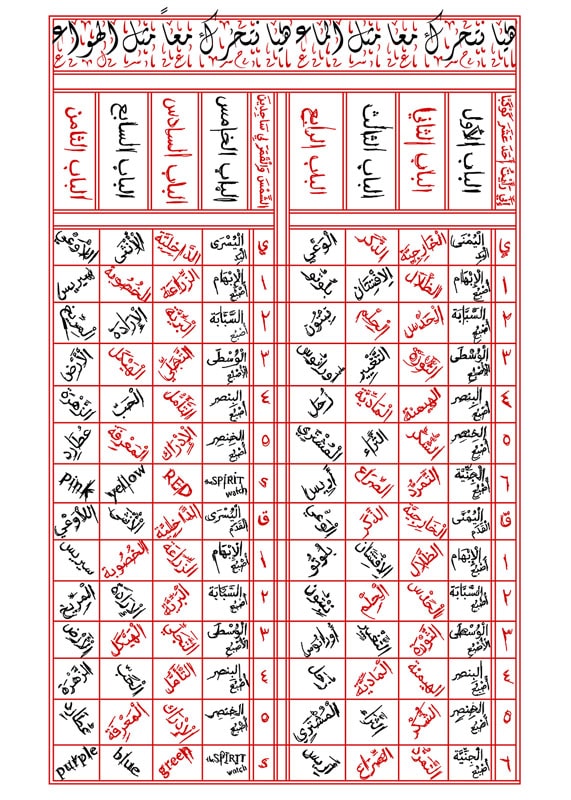 هيا نتحرك معا مثل الماء هيا نتحرك معاً مثل الهواء
إِنِّي رَأَيْتُ أَحَدَ عَشَرَ كَوْكَبًا الباب الأول الباب الثاني الباب الثالث الباب الرابع الشَّمْسَ وَالْقَمَرَ لِي سَاجِدِينَ الباب الخامس الباب السادس الباب السابع الباب الثامن
ي الْيُمْنَى الْيَد الْخَارِجِيَّة الذَّكَر الْوَعْي ي الْيُسْرَى الْيَد الدَّاخِلِيَّة الأُنْثَى اللَّاوَعْي
١ الْإِبْهَام أصْبُع الظَّلَال الِافْتِتَان بلُوتُو ١ الْإِبْهَام أصْبُع الزِّرَاعَة الْخُصُوبَة سيريس
٢ السَّبَّابَة أصْبُع الْحَدْس الْحِلْم نِبْتُون ٢ السَّبَّابَة أصْبُع الْبَرِّيَّة الْإِرَادَة الْمِرِّيخ
٣ الْوُسْطَى الْأصْبُع الثَّوْرَة التَّغْيِير أُورَانُوس ٣ الْوُسْطَى الْأصْبُع التَّجَلِّي الْهَيْكَل الْأَرْض
٤ البنصر أصْبُع الْهَيْمَنَة الْمَادِّيَّة زُحَل ٤ البنصر أصْبُع التَّأَمُّل الْحُبّ الزَّهْرَة
٥ الخِنصِر أصْبُع الشُّكْر الثَّرَاء الْمُشْتَرِي ٥ الخِنصِر أصْبُع الْإِدْرَاك الْمَعْرِفَة عُطَارِد
٦ الْجِنِّيَّة أصْبُع التَّمَرُّد الصِّرَاع إِرِيس ي the SPIRIT watch RED yellow pink
ق الْيُمْنَى الْقَدَم الْخَارِجِيَّة الذَّكَر الْوَعْي ق الْيُسْرَى الْقَدَم الدَّاخِلِيَّة الْأُنْثَى اللَّاوَعْي
١ الْإِبْهَام أصْبُع الظَّلَال الِافْتِتَان بلُوتُو ١ الْإِبْهَام أصْبُع الزِّرَاعَة الْخُصُوبَة سيريس
٢ السَّبَّابَة أصْبُع الْحَدْس الْحِلْم نِبْتُون ٢ السَّبَّابَة أصْبُع الْبَرِّيَّة الْإِرَادَة الْمِرِّيخ
٣ الْوُسْطَى الْأصْبُع الثَّوْرَة التَّغْيِير أُورَانُوس ٣ الْوُسْطَى الْأصْبُع التَّجَلِّي الْهَيْكَل الْأَرْض
٤ البنصر أصْبُع الْهَيْمَنَة الْمَادِّيَّة زُحَل ٤ البنصر أصْبُع التَّأَمُّل الْحُبّ الزَّهْرَة
٥ الخِنصِر أصْبُع الشُّكْر الثَّرَاء الْمُشْتَرِي ٥ الخِنصِر أصْبُع الْإِدْرَاك الْمَعْرِفَة عُطَارِد
٦ الْجِنِّيَّة أصْبُع التَّمَرُّد الصِّرَاع إِرِيس the SPIRIT watch green blue purple